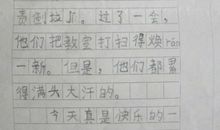 责倒垃圾。过了一会，
他们把教室打扫得焕rán
一新。但是，他们都累
得满头大汗的。
今天真是快乐的一